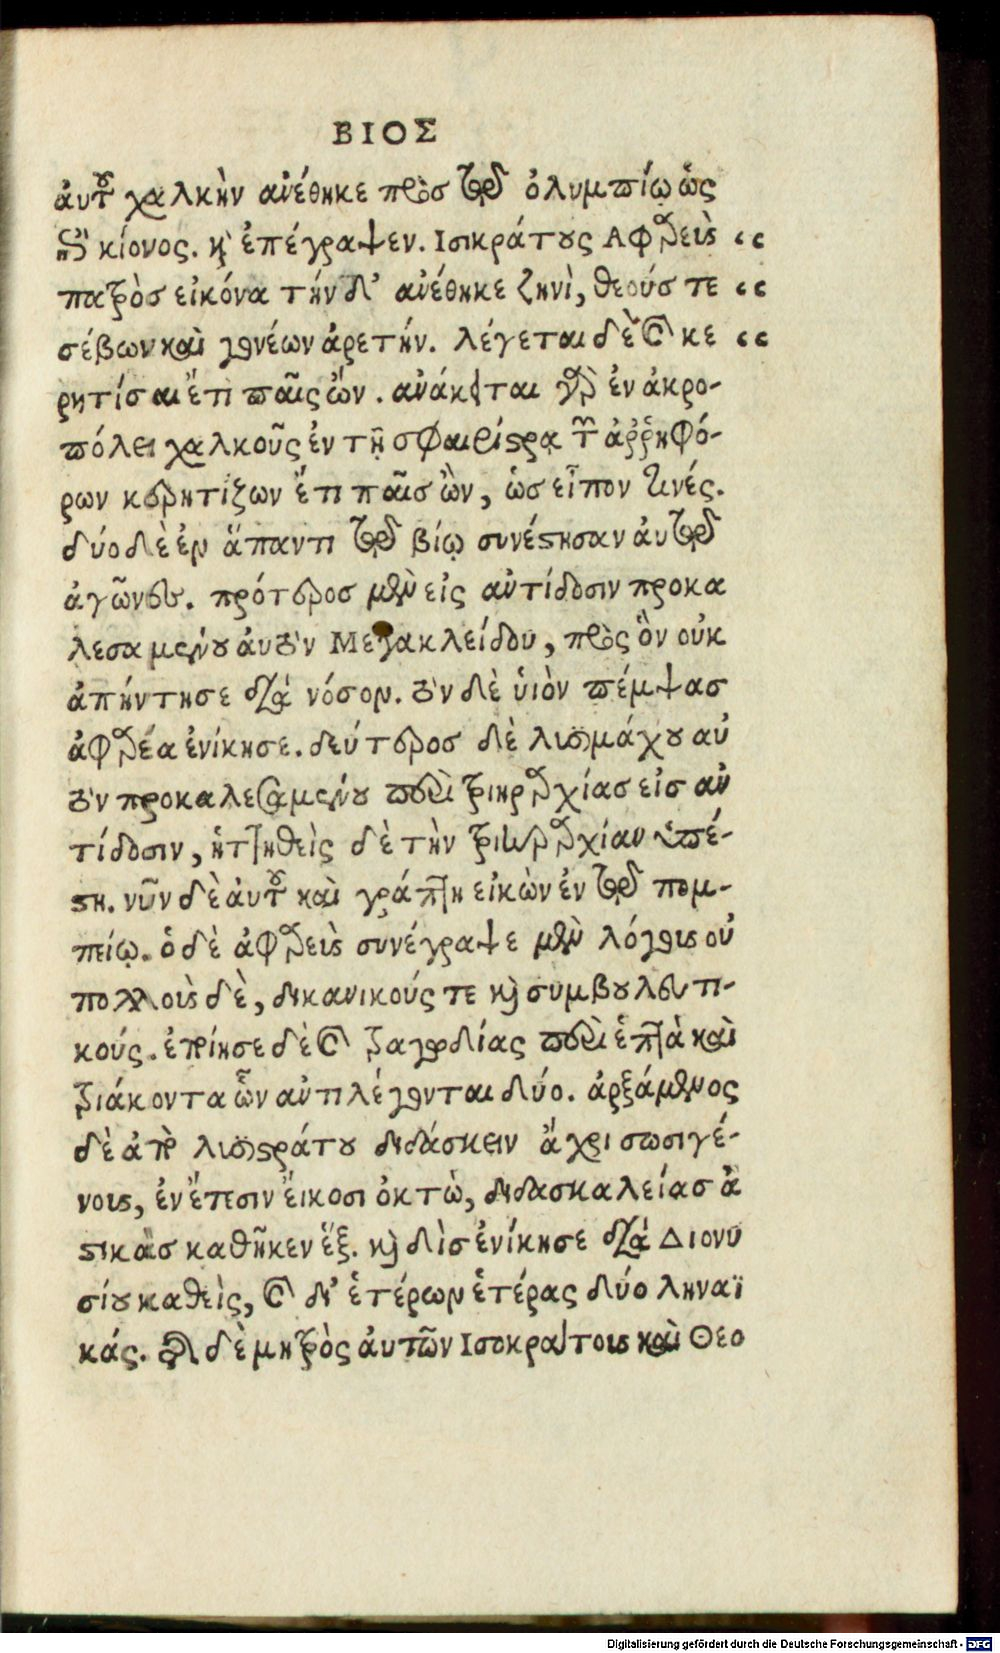 ΒΙΟΣ
ἀυτοῦ χαλκὴν ἀνέθηκε πρὸσ τῷ ὀλυμπίῳ ὡς
ἐπὶ κίονος. καὶ ἐπέγραψεν. Ισικράτους Αφαρεὺς “
πατρὸσ εἰκόνα τήνδ’ ἀνέθηκε ζηνὶ, θεούς τε “
σέβων καὶ γονέων ἀρετήν. λέγεται δὲ καὶ κε “
ρητίσαι ἔτι παῖς ὤν. ἀνάκειται γὰρ ἐν ἀκρο-
πόλει χαλκοῦς ἐν τῇ σφαιρίστρᾳ τῶν ἀῤῥηφό-
ρων κερητίζων ἔτι παῖσ ὢν, ὡσ εἶπον τινές.
δύο δὲ ἐν ἅπαντι τῷ βίῳ συνέστησαν ἀυτῷ
ἀγῶνες. πρότερος μὲν εἰς ἀντίδοσιν προκα
λεσαμένου ἀυτὸν Μεγακλείδου, πρὸς ὃν οὐκ
ἀπήντησε διὰ νόσον. τὸν δὲ ὑιὸν πέμψασ
ἀφαρέα ἐνίκησε. δεύτερος δὲ λυσιμάχου αὐ
τὸν προκαλεσαμένου περὶ τριηραρχίασ εἰσ ἀν
τίδοσιν, ἡττηθεὶς δὲ τὴν τριηραρχίαν ὑπέ-
στη. νῦν δὲ ἀυτοῦ καὶ γράπτη εἰκὼν ἐν τῷ πομ-
πείῳ. ὁ δὲ ἀφαρεὺς συνέγραψε μὲν λόγους οὐ
πολλοὺς δὲ, δικανικούς τε καὶ συμβουλευτι-
κούς. ἐποίησε δὲ καὶ τραγῳδίας περὶ ἑπτὰ καὶ
τριάκοντα ὧν ἀντιλέγονται δύο. ἀρξάμενος
δὲ ἀπὸ λυσιστράτου διδάσκειν ἄχρι σωσιγέ-
νους, ἐν ἔτεσιν ἔικοσι ὀκτὼ, διδασκαλείασ ἀ
στικὰσ καθῆκεν ἕξ. καὶ δὶσ ἐνίκησε διὰ Διονυ
σίου καθεὶς, καὶ δι’ ἑτέρων ἑτέρας δύο ληναϊ
κάς. τῆς δὲ μητρὸς ἀυτῶν Ισοκράτους καὶ Θεο
Digitalisierung gefördert durch die Deutsche Forschungsgemeinschaft - DFG